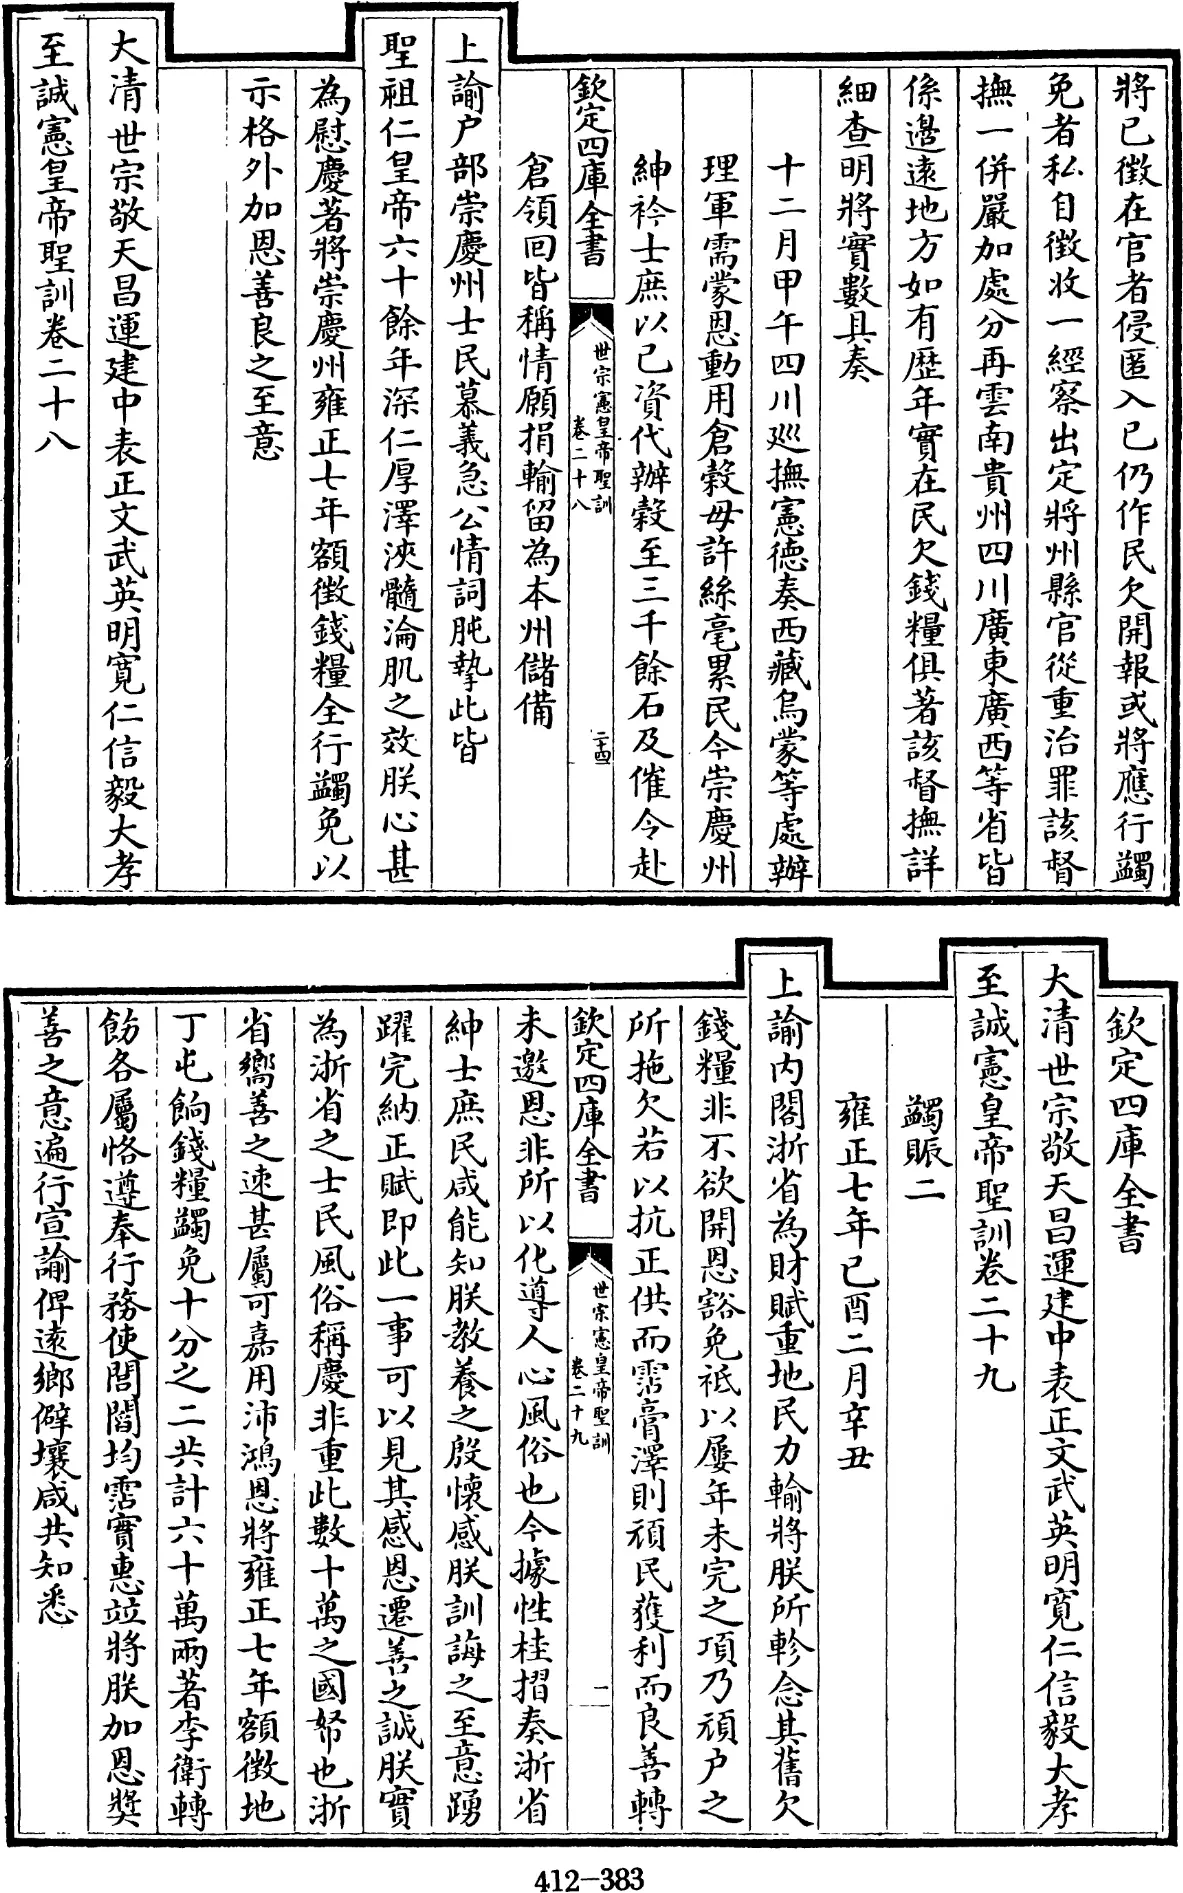 將已徵在官者侵匿入已仍作民欠開報或將應行蠲
免者私自徵收一經察出定將州縣官從重治罪該督
撫一併嚴加處分再雲南貴州四川廣東廣西等省皆
係邊遠地方如有歷年實在民欠錢糧俱著該督撫詳
細查明將實數具奏
十二月甲午四川巡撫憲德奏西藏烏蒙等處辦
理軍需蒙恩動用倉穀毋許絲毫累民今崇慶州
紳衿士庶以已資代辦穀至三千餘石及催令赴
欽定四庫全書
世宗憲皇帝聖訓
卷二十八
二十四
倉領回皆稱情願捐輸留為本州儲備
上諭户部崇慶州士民慕義急公情詞肫摯此皆
聖祖仁皇帝六十餘年深仁厚澤浹髓淪肌之效朕心甚
為慰慶著將崇慶州雍正七年額徵錢糧全行蠲免以
示格外加恩善良之至意
大清世宗敬天昌運建中表正文武英明寬仁信毅大孝
至誠憲皇帝聖訓卷二十八
欽定四庫全書
大清世宗敬天昌運建中表正文武英明寬仁信毅大孝
至誠憲皇帝聖訓卷二十九
蠲賑二
雍正七年已酉二月辛丑
上諭内閣浙省為財賦重地民力輸將朕所軫念其舊欠
錢糧非不欲開恩豁免祇以屢年未完之項乃頑户之
所拖欠若以抗正供而霑膏澤則頑民獲利而良善轉
欽定四庫全書
世宗憲皇帝聖訓
卷二十九
一
未邀恩非所以化導人心風俗也今據性桂摺奏浙省
紳士庶民咸能知朕教養之殷懷感朕訓誨之至意踴
躍完納正賦即此一事可以見其感恩遷善之誠朕實
為浙省之士民風俗稱慶非重此數十萬之國帑也浙
省嚮善之速甚屬可嘉用沛鴻恩將雍正七年額徵地
丁屯餉錢糧蠲免十分之二共計六十萬兩著李衛轉
飭各屬恪遵奉行務使閭閻均霑實惠竝將朕加恩奬
善之意遍行宣諭俾遠鄉僻壤咸共知悉
412-383